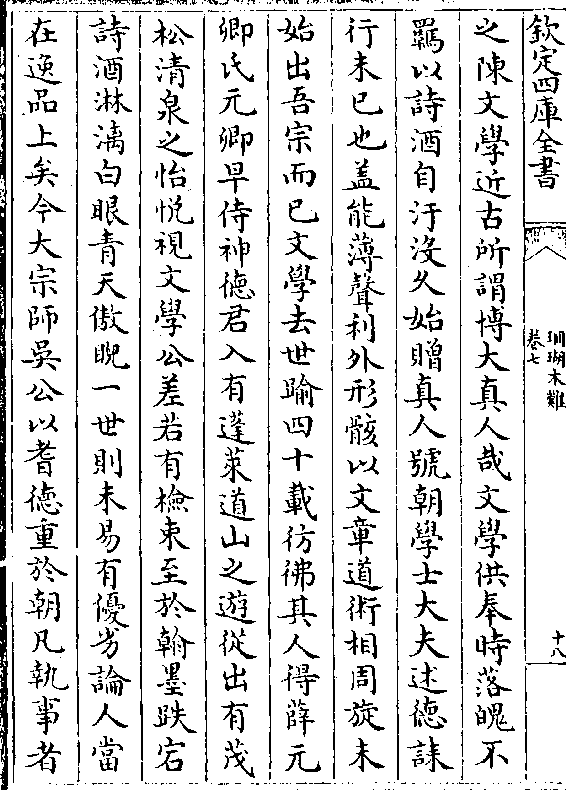 欽定四庫全書
珊瑚木難
卷七
十八
之陳文學近古所謂博大真人哉文學供奉時落魄不
羈以詩酒自汙沒久始贈真人號朝學士大夫述德誄
行未已也盖能薄聲利外形骸以文章道術相周旋未
始出吾宗而已文學去世踰四十載彷彿其人得薛元
卿氏元卿早侍神德君入有蓬萊道山之遊從出有茂
松清泉之怡悦視文學公差若有檢束至於翰墨跌宕
詩酒淋漓白眼青天傲睨一世則未易有優劣論人當
在逸品上矣今大宗師吳公以耆德重於朝凡執事者